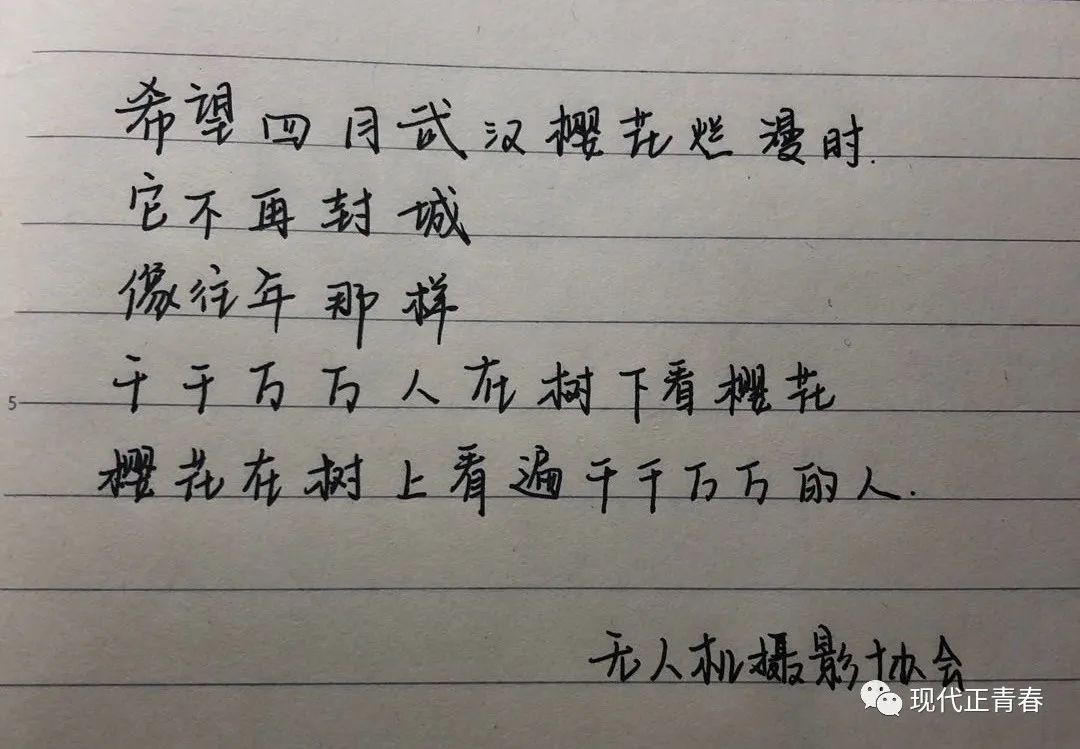 希望四月武汉樱花烂漫时.
它不再封城
像往年那样
千千万万人在树下看樱花
5
樱花在树上看遍千千万万的人.
无人机摄影协会
现代正青春